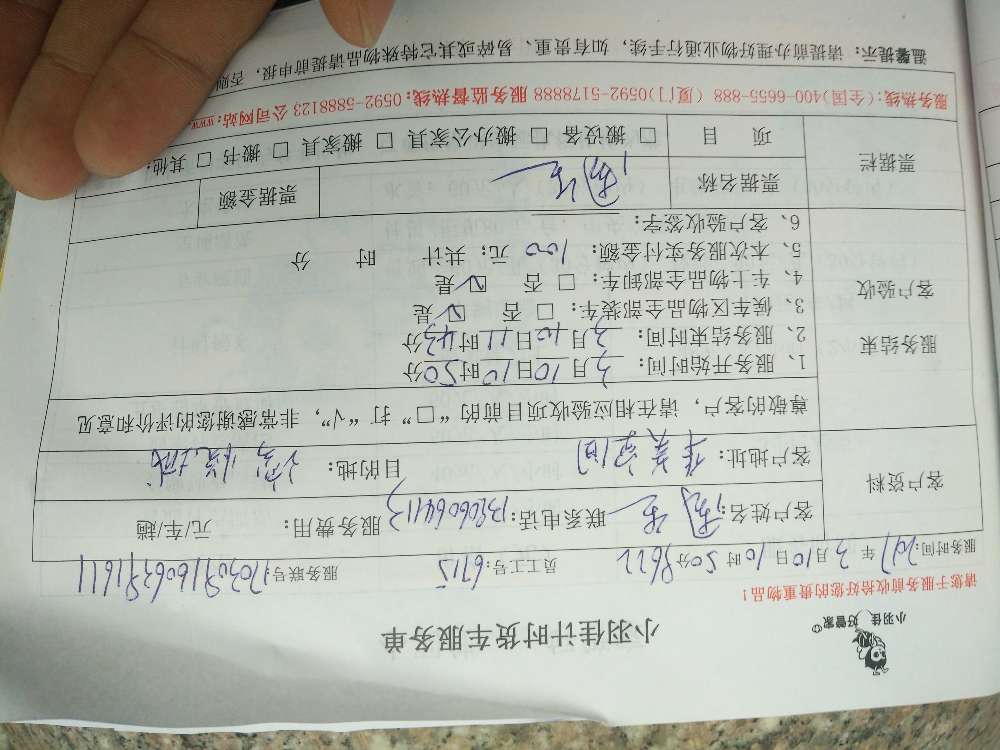 小羽佳 好管家
小羽佳计时货车服务单
请您于服务前收拾好您的贵重物品！
服务时间：2017年3月10日10时50分 员工工号：6715 服务联号：
客户资料 客户姓名： 联系电话： 服务费用： 元/车/趟
客户地址： 目的地：
尊敬的客户，请在相应验收项目前的“□”打“√”，非常感谢您的评价和意见
服务结束
客户验收
1、服务开始时间：3月10日10时50分
2、服务结束时间：3月10日11时43分
3、候车区物品全部装车：□ 否 ☑ 是
4、车上物品全部卸车：□ 否 ☑ 是
5、本次服务实付金额：100元；共计 时 分
6、客户验收签字：
票据栏 票据名称 票据金额
项 目 □ 搬设备 □ 搬办公家具 □ 搬家具 □ 搬书 □ 其他：
服务热线：(全国)400-6655-888 (厦门)0592-5178888 服务监督热线：0592-5888123 公司网站：www.
温馨提示：请提前办理好物业通行手续，如有贵重、易碎或其它特殊物品请提前申报，否则